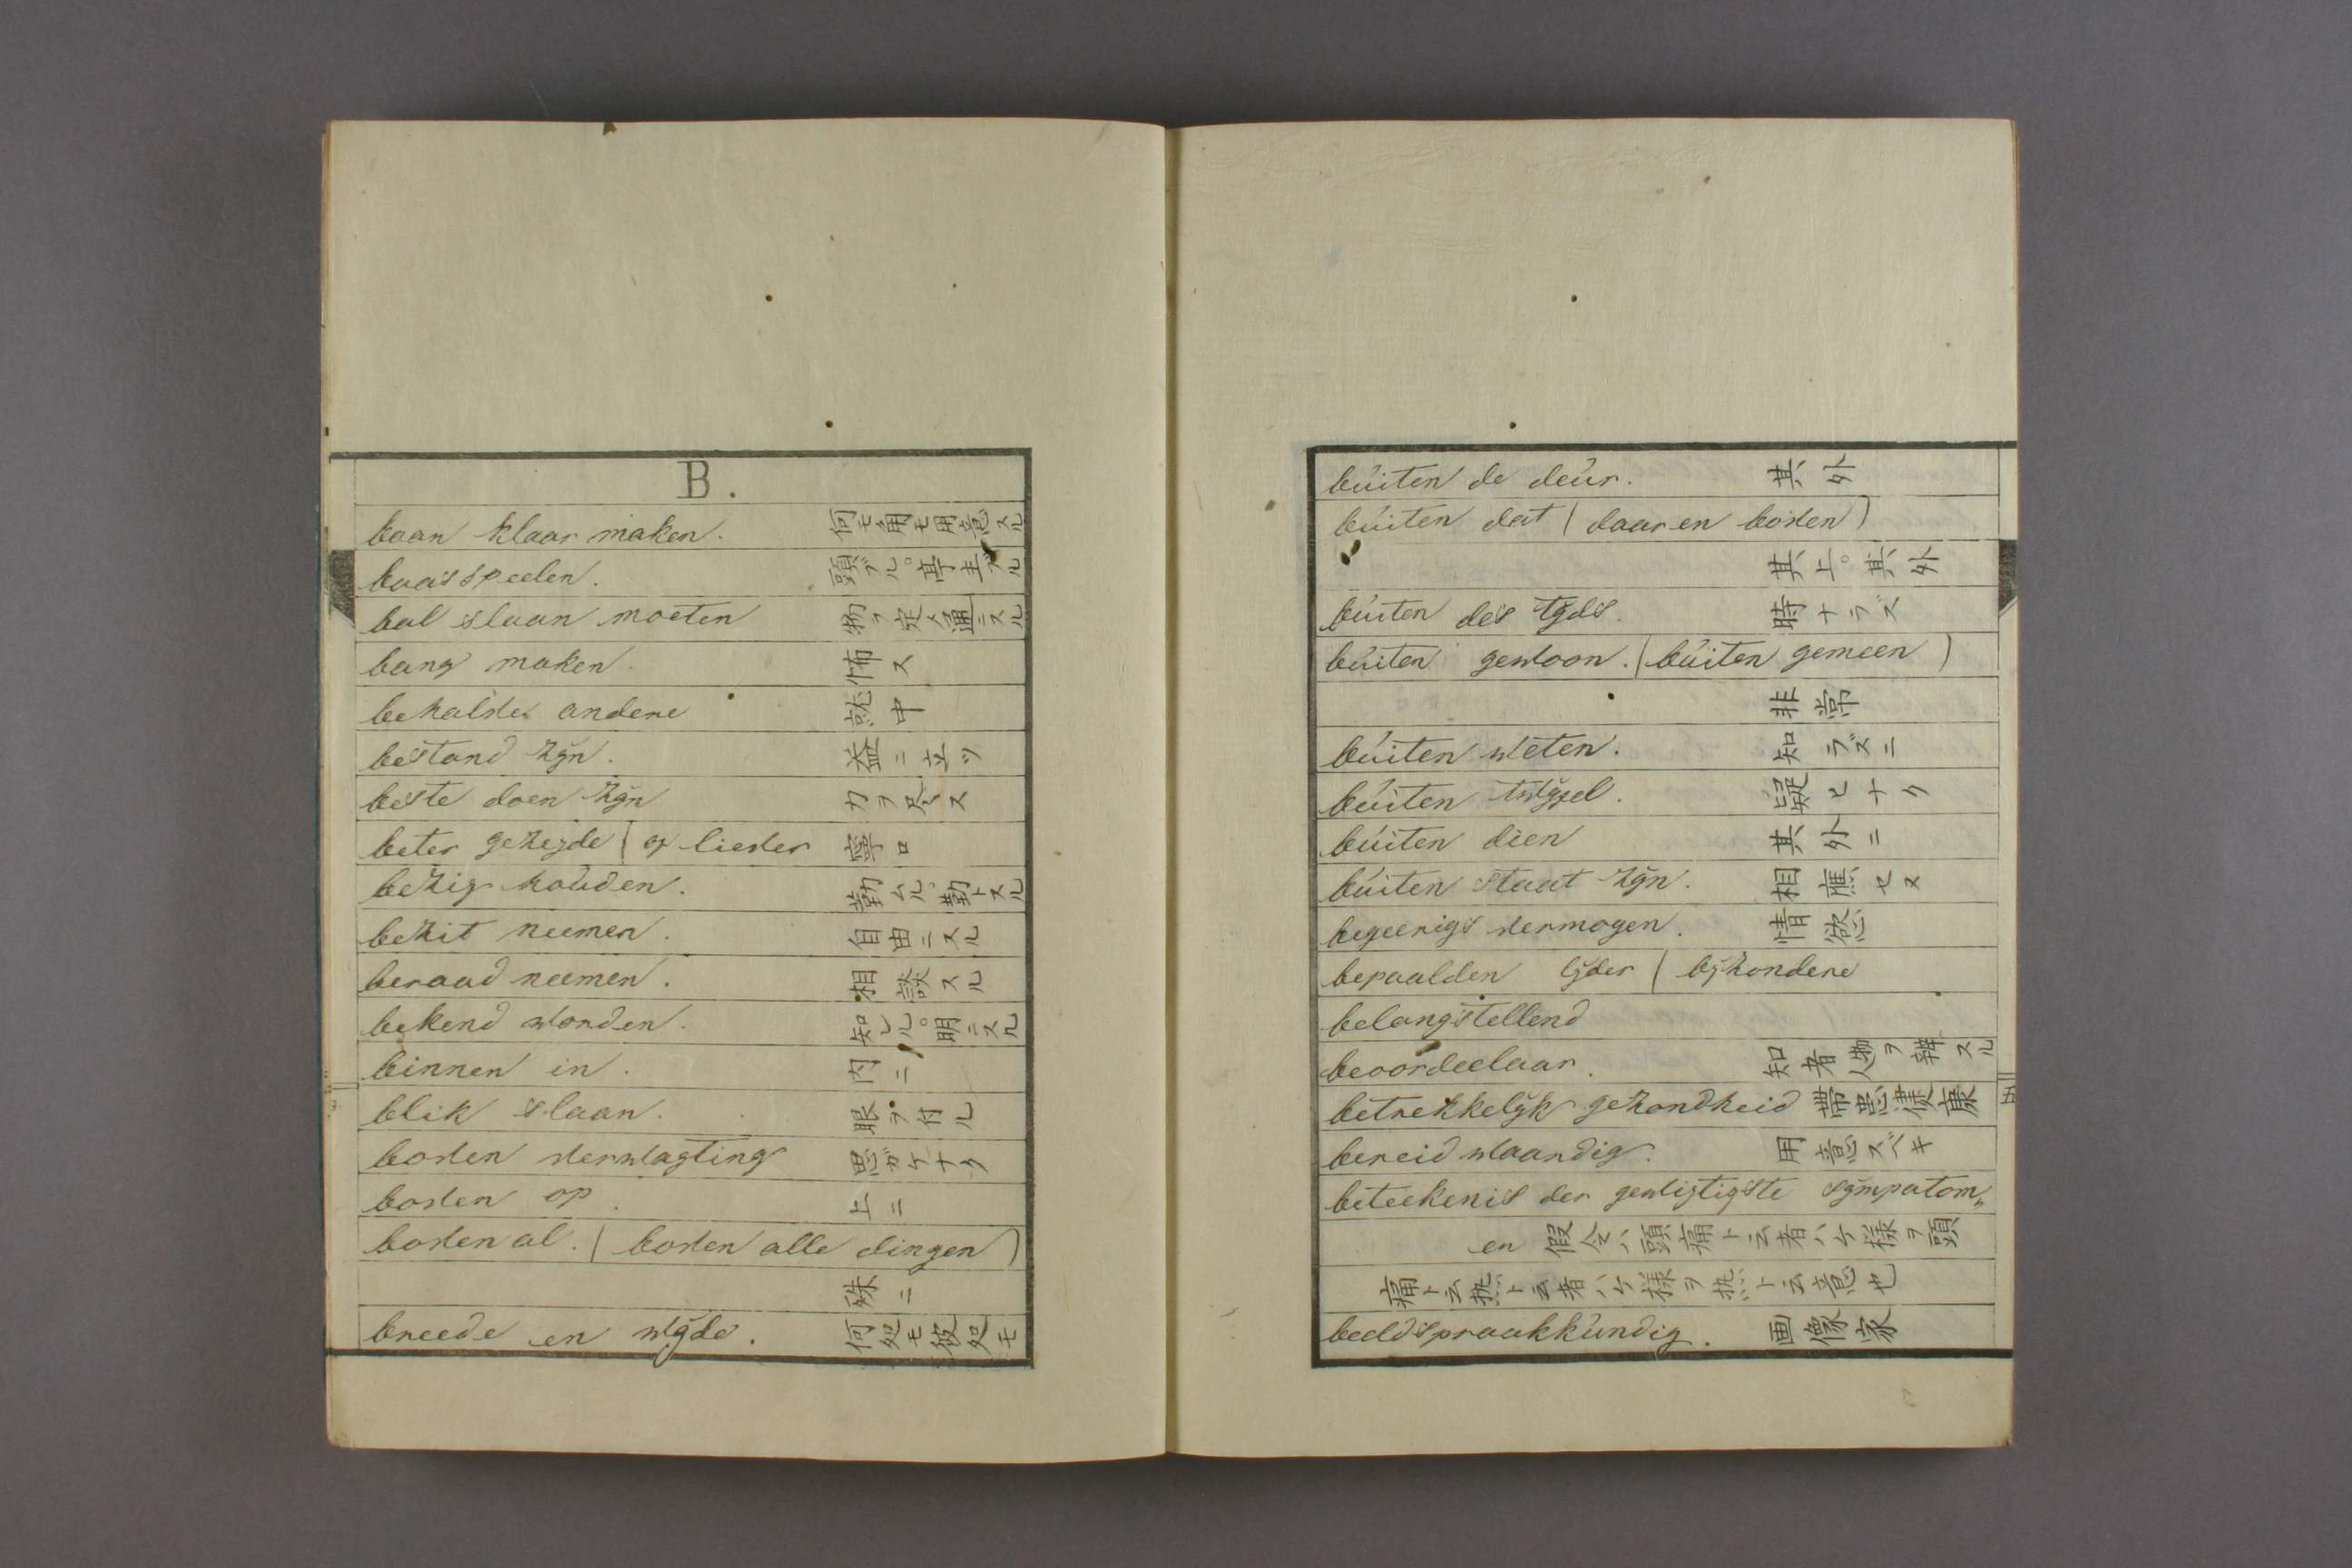 B.
baan klaar maken. 何モ角モ用意スル
baas speelen. 頭ブル。亭主ブル
bal slaan moeten 物ヲ定メ通ニスル
bang maken. 怖ス
behalve andere 就中
bestand zÿn. 益ニ立ツ
beste doen zÿn 力ヲ尽ス
beter gezegde ( of liever 寧ロ
bezig houden. 勤ムル 勤トスル
bezit neemen. 自由ニスル
beraad neemen. 相談スル
bekend worden. 知ヒル。明ニスル
binnen in. 内ニ
blik slaan. 眼ヲ付ル
boven verwagting 思ガケナク
boven op. 上ニ
boven al. ( boven alle dingen )
殊ニ
breede en wÿde. 何処モ彼処モ
buiten de deur. 其外
buiten dat ( daar en boven )
其上。其外
buiten des tÿds. 時ナラズ
buiten gewoon. ( buiten gemeen )
非常
buiten weten. 知ラズニ
buiten twÿfel. 疑ヒナク
buiten dien 其外ニ
buiten staat zÿn. 相應セヌ
begeerigs vermogen. 情慾
bepaalden lÿder ( bÿzondere
belangstellend
beoordeelaar. 知者 物ヲ辨スル人
betrekkelÿk gezondheid 帯患健康
bereidwaardig. 用意スベキ
beteekenis der gewigtigste sÿmpatom„
en 假令ハ頭痛ト云者ハケ様ヲ頭
痛ト云熱ト云者ハケ様ヲ熱ト云意也
beeldspraakkundig. 画像家
五